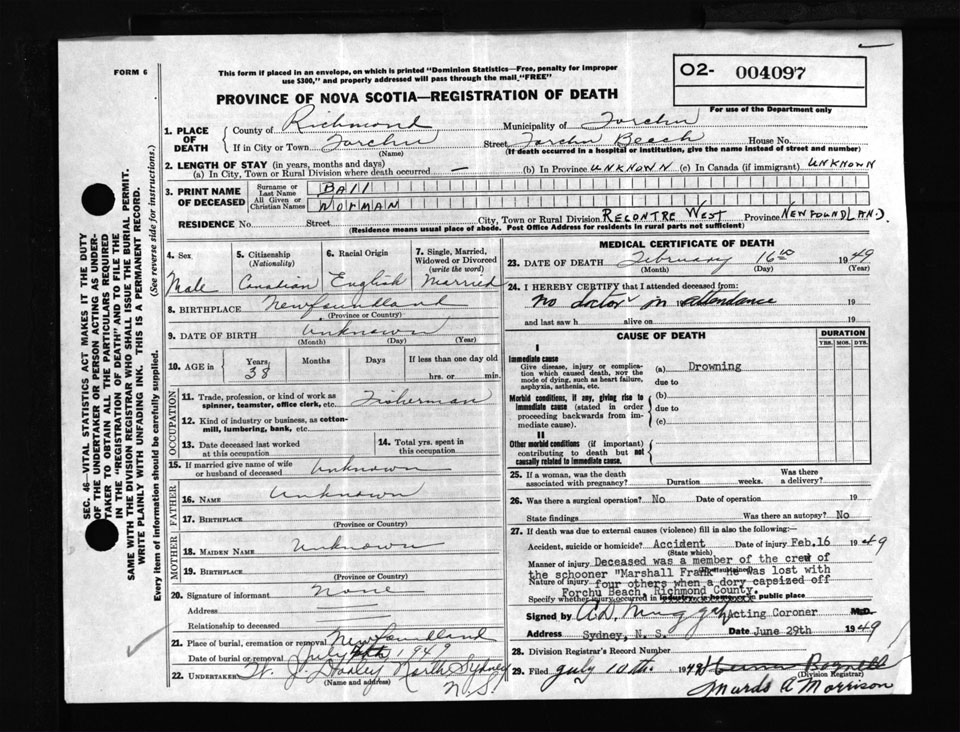 FORM 6
This form if placed in an envelope, on which is printed "Dominion Statistics—Free, penalty for improper
use $300," and properly addressed will pass through the mail "FREE"
O2- 004097
For use of the Department only
PROVINCE OF NOVA SCOTIA—REGISTRATION OF DEATH
SEC. 46—VITAL STATISTICS ACT MAKES IT THE DUTY
OF THE UNDERTAKER OR PERSON ACTING AS UNDER-
TAKER TO OBTAIN ALL THE PARTICULARS REQUIRED
IN THE "REGISTRATION OF DEATH" AND TO FILE THE
SAME WITH THE DIVISION REGISTRAR WHO SHALL ISSUE THE BURIAL PERMIT.
WRITE PLAINLY WITH UNFADING INK. THIS IS A PERMANENT RECORD.
Every item of information should be carefully supplied. (See reverse side for instructions.)
1. PLACE OF DEATH
County of Richmond Municipality of Forchu
If in City or Town Forchu Street Forchu Beach House No.
(Name) (If death occurred in a hospital or institution, give the name instead of street and number)
2. LENGTH OF STAY (in years, months and days)
(a) In City, Town or Rural Division where death occurred — (b) In Province UNKNOWN (c) In Canada (if immigrant) UNKNOWN
3. PRINT NAME OF DECEASED
Surname or Last Name BALL
All Given or Christian Names NORMAN
RESIDENCE No. Street City, Town or Rural Division RECONTRE WEST Province NEWFOUNDLAND
(Residence means usual place of abode. Post Office Address for residents in rural parts not sufficient)
4. Sex Male
5. Citizenship (Nationality) Canadian
6. Racial Origin English
7. Single, Married, Widowed or Divorced (write the word) Married
8. BIRTHPLACE Newfoundland
(Province or Country)
9. DATE OF BIRTH Unknown
(Month) (Day) (Year)
10. AGE in Years 38 Months Days If less than one day old
hrs. or min.
OCCUPATION
11. Trade, profession, or kind of work as
spinner, teamster, office clerk, etc. Fisherman
12. Kind of industry or business, as cotton-
mill, lumbering, bank, etc.
13. Date deceased last worked
at this occupation
14. Total yrs. spent in
this occupation
15. If married give name of wife
or husband of deceased Unknown
FATHER
16. NAME Unknown
17. BIRTHPLACE
(Province or Country)
MOTHER
18. MAIDEN NAME Unknown
19. BIRTHPLACE
(Province or Country)
20. Signature of informant None
Address
Relationship to deceased
21. Place of burial, cremation or removal Newfoundland
Date of burial or removal July 1949
22. UNDERTAKER W. J. Dooley North Sydney
(Name and address) N.S.
MEDICAL CERTIFICATE OF DEATH
23. DATE OF DEATH February 16 1949
(Month) (Day) (Year)
24. I HEREBY CERTIFY that I attended deceased from:
no doctor in attendance 19
and last saw h alive on 19
CAUSE OF DEATH DURATION
YRS. MOS. DYS.
I
Immediate cause
Give disease, injury or compli-
cation which caused death, NOT the
mode of dying, such as heart failure,
asphyxia, asthenia, etc.
(a) Drowning
due to
Morbid conditions, if any, giving rise to
immediate cause (stated in order
proceeding backwards from im-
mediate cause).
(b)
due to
(c)
II
Other morbid conditions (if important)
contributing to death but not
causally related to immediate cause.
25. If a woman, was the death
associated with pregnancy? Duration weeks. Was there
a delivery?
26. Was there a surgical operation? No Date of operation 19
State findings Was there an autopsy? No
27. If death was due to external causes (violence) fill in also the following:—
Accident, suicide or homicide? Accident Date of injury Feb. 16 1949
(State which)
Manner of injury Deceased was a member of the crew of
the schooner "Marshall Frank" He was lost with
Nature of injury four others when a dory capsized off
Forchu Beach, Richmond County.
Specify whether injury occurred in industry, in home, or in public place
Signed by A D Muggah Acting Coroner M.D.
Address Sydney, N. S. Date June 29th 1949
28. Division Registrar's Record Number
29. Filed July 10th 1949
(Division Registrar)
Murdo A Morrison